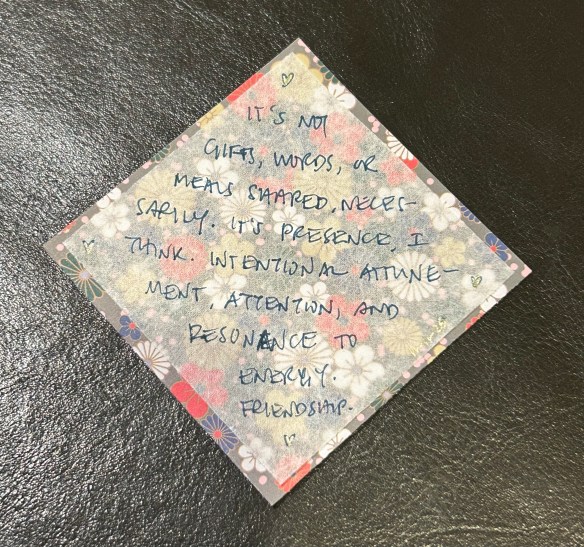 IT'S NOT
GIFTS, WORDS, OR
MEALS SHARED, NECES-
SARILY. IT'S PRESENCE, I
THINK. INTENTIONAL ATTUNE-
MENT. ATTENTION, AND
RESONANCE TO
ENERGY.
FRIENDSHIP.